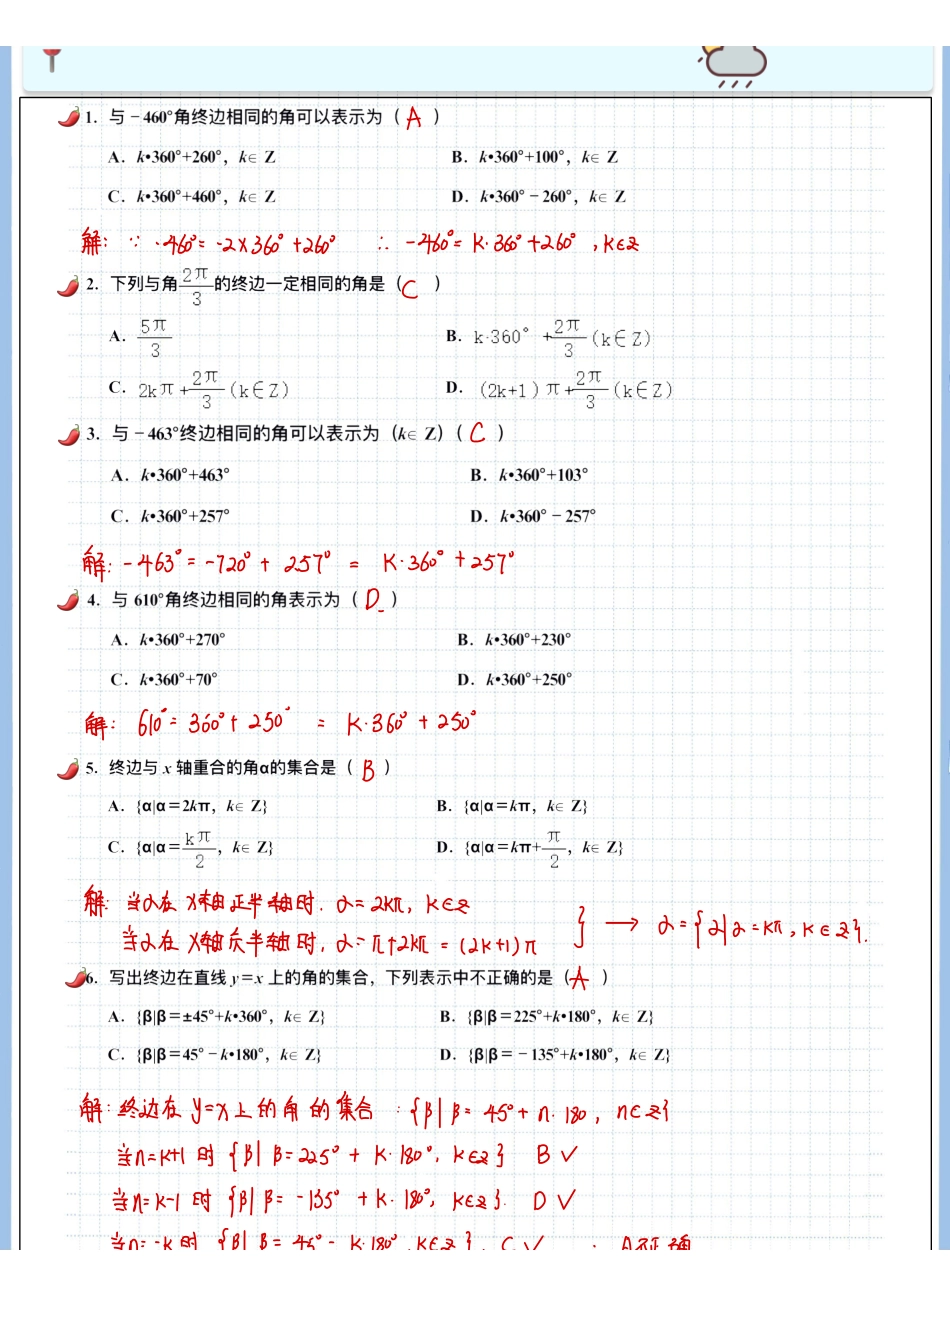 1. 与－460°角终边相同的角可以表示为（ A ）
A. k•360°+260°，k∈Z B. k•360°+100°，k∈Z
C. k•360°+460°，k∈Z D. k•360°－260°，k∈Z
解: ∵ -460°= -2×360°+260° ∴ -460°= k·360°+260°，k∈Z
2. 下列与角2π/3的终边一定相同的角是（ C ）
A. 5π/3 B. k·360°+2π/3(k∈Z)
C. 2kπ+2π/3(k∈Z) D. (2k+1)π+2π/3(k∈Z)
3. 与－463°终边相同的角可以表示为（k∈Z）（ C ）
A. k•360°+463° B. k•360°+103°
C. k•360°+257° D. k•360°－257°
解: -463°= -720°+257° = k·360°+257°
4. 与 610°角终边相同的角表示为（ D ）
A. k•360°+270° B. k•360°+230°
C. k•360°+70° D. k•360°+250°
解: 610°= 360°+250° = k·360°+250°
5. 终边与 x 轴重合的角α的集合是（ B ）
A. {α|α＝2kπ，k∈Z} B. {α|α＝kπ，k∈Z}
C. {α|α＝kπ/2，k∈Z} D. {α|α＝kπ+π/2，k∈Z}
解: 当α在 x轴正半轴时. α=2kπ, k∈Z
当α在 x轴负半轴时, α=π+2kπ=(2k+1)π } → α={α|α=kπ, k∈Z}.
6. 写出终边在直线 y＝x 上的角的集合，下列表示中不正确的是（ A ）
A. {β|β＝±45°+k•360°，k∈Z} B. {β|β＝225°+k•180°，k∈Z}
C. {β|β＝45°－k•180°，k∈Z} D. {β|β＝－135°+k•180°，k∈Z}
解: 终边在 y=x上的角的集合: {β|β=45°+n·180, n∈Z}
当n=k+1时 {β|β=225°+k·180°, k∈Z} B ✓
当n=k-1时 {β|β=-135°+k·180°, k∈Z}. D ✓
当n=-k时 {β|β=45°-k·180°, k∈Z}, C ✓ ∴ A不正确